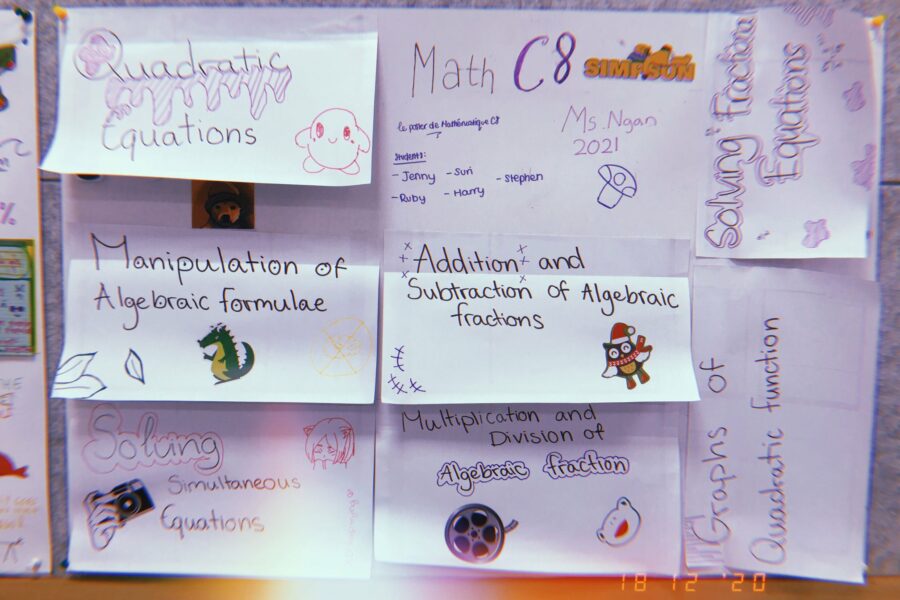 Quadratic
Equations
Math C8 SIMPSUN
le poster de Mathématique C8
Students:
- Jenny - Suri - Stephen
- Ruby - Harry
Ms. Ngan
2021
Solving Fractional
Equations
Manipulation of
Algebraic formulae
Addition and
Subtraction of Algebraic
fractions
Solving
Simultaneous
Equations
Multiplication and
Division of
Algebraic fraction
Graphs of
Quadratic function
18 12 '20